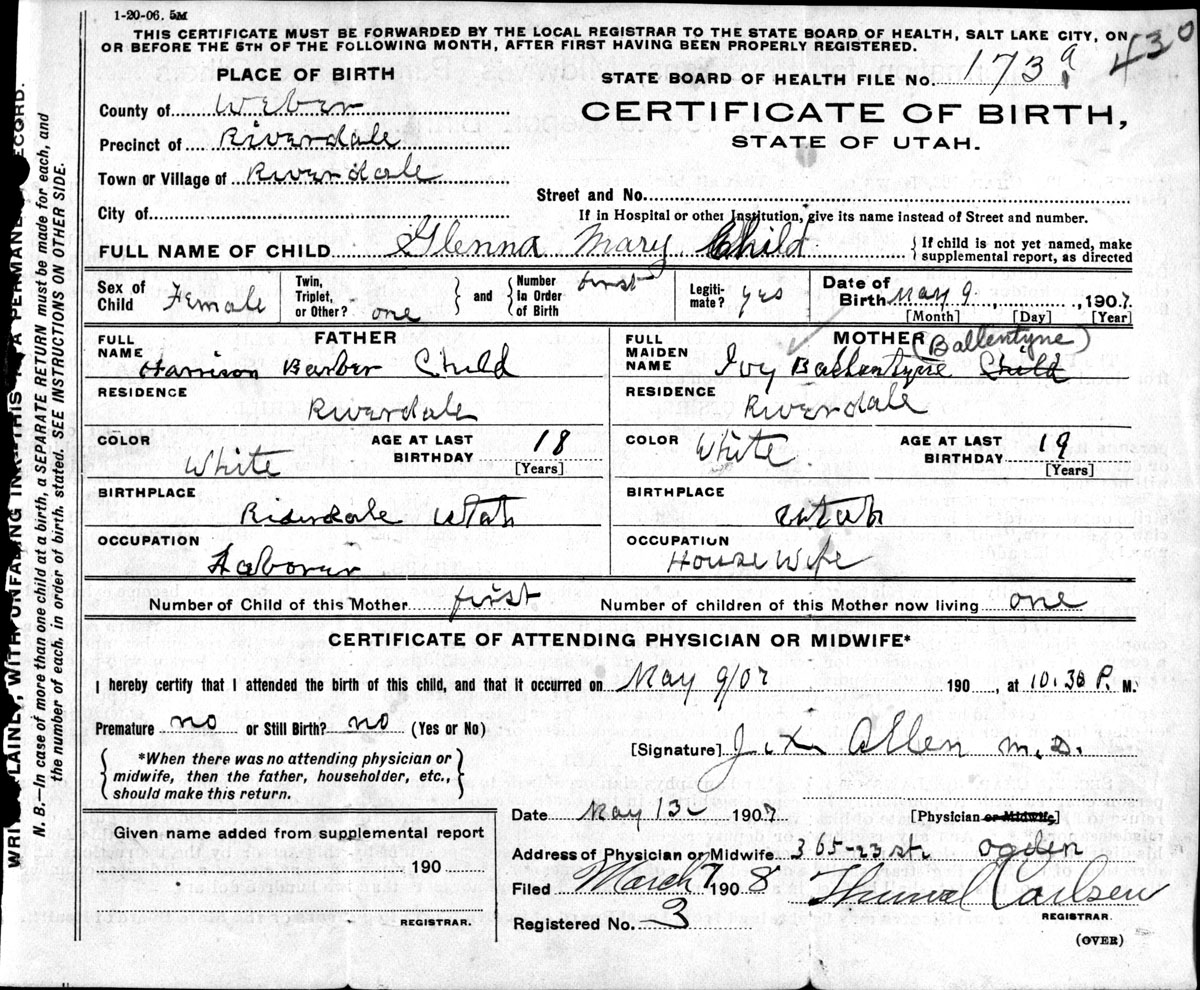 1-20-06. 5M
THIS CERTIFICATE MUST BE FORWARDED BY THE LOCAL REGISTRAR TO THE STATE BOARD OF HEALTH, SALT LAKE CITY, ON
OR BEFORE THE 5TH OF THE FOLLOWING MONTH, AFTER FIRST HAVING BEEN PROPERLY REGISTERED.
430
PLACE OF BIRTH
STATE BOARD OF HEALTH FILE No. 173 a
County of Weber
CERTIFICATE OF BIRTH,
Precinct of Riverdale
STATE OF UTAH.
Town or Village of Riverdale
Street and No.
City of
If in Hospital or other Institution, give its name instead of Street and number.
FULL NAME OF CHILD Glenna Mary Child
If child is not yet named, make
supplemental report, as directed
Sex of Child Female
Twin, Triplet, or Other? one
and
Number in Order of Birth first
Legiti-mate? yes
Date of Birth May 9, 1907.
[Month] [Day] [Year]
FATHER
FULL NAME Harrison Barber Child
RESIDENCE
Riverdale
COLOR White
AGE AT LAST BIRTHDAY 18
[Years]
BIRTHPLACE
Riverdale Utah
OCCUPATION
Laborer
MOTHER (Ballentyne)
FULL MAIDEN NAME Ivy Ballentyne Child
RESIDENCE
Riverdale
COLOR White
AGE AT LAST BIRTHDAY 19
[Years]
BIRTHPLACE
Utah
OCCUPATION
House Wife
Number of Child of this Mother first Number of children of this Mother now living one
CERTIFICATE OF ATTENDING PHYSICIAN OR MIDWIFE*
I hereby certify that I attended the birth of this child, and that it occurred on May 9/07 190 , at 10.30 P. M.
Premature no or Still Birth? no (Yes or No)
[Signature] Allen M.D.
*When there was no attending physician or
midwife, then the father, householder, etc.,
should make this return.
Date May 13 1907
[Physician or Midwife]
Given name added from supplemental report
190
REGISTRAR.
Address of Physician or Midwife 365-23 st. Ogden
Filed March 7 1908 Carlsen
REGISTRAR.
Registered No. 3
(OVER)
N. B.—In case of more than one child at a birth, a SEPARATE RETURN must be made for each, and
the number of each, in order of birth, stated. SEE INSTRUCTIONS ON OTHER SIDE.
PLAINLY, WITH UNFADING INK—THIS IS A PERMANE